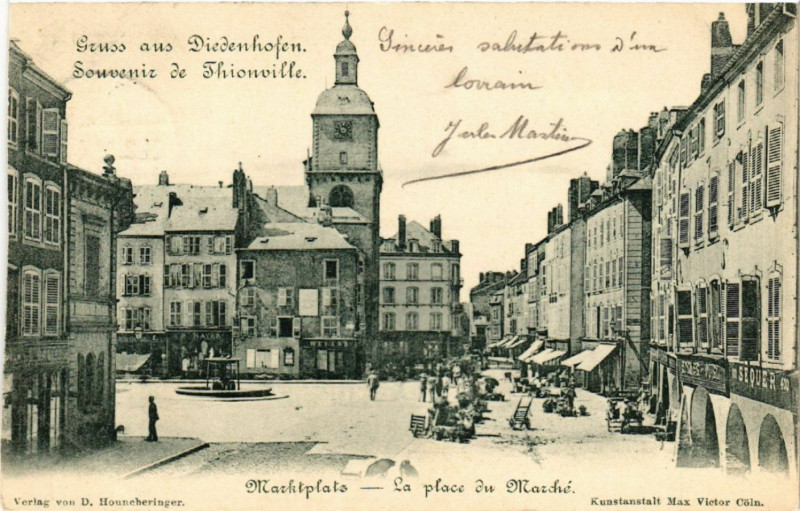 Gruss aus Diedenhofen.
Souvenir de Thionville.
Sincères salutations d'un
lorrain
Jules Martin
SEQUER
Marktplats — La place du Marché.
Verlag von D. Houncheringer.
Kunstanstalt Max Victor Cöln.